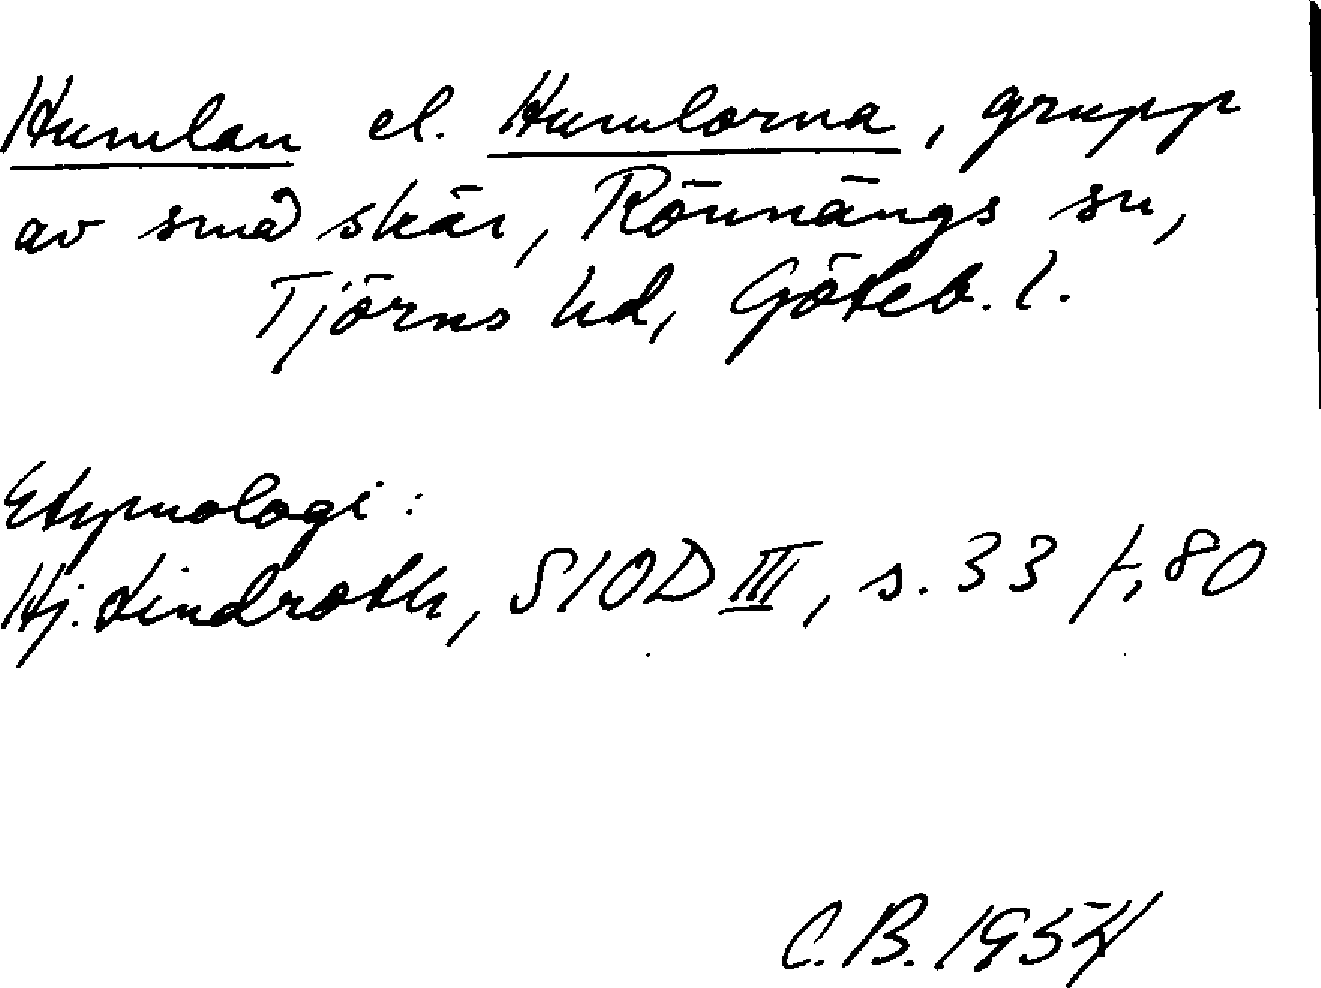 Humlan el. Humlorna, grupp
av små skär, Rönnängs sn,
Tjörns hd, Göteb. l.
Etymologi:
Hj. Lindroth, SIOD III, s. 33 f, 80
C.B. 1954